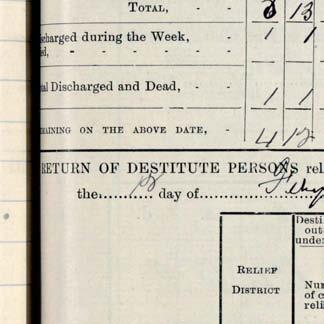 TOTAL, - - 8 13
scharged during the Week, - 1 1
ed, - - - - - -
al Discharged and Dead, - 1 1
MAINING ON THE ABOVE DATE, - 4 12
RETURN OF DESTITUTE PERSONS rel
the............ day of
Desti
out
unde
RELIEF
DISTRICT
Nun
of c
reli